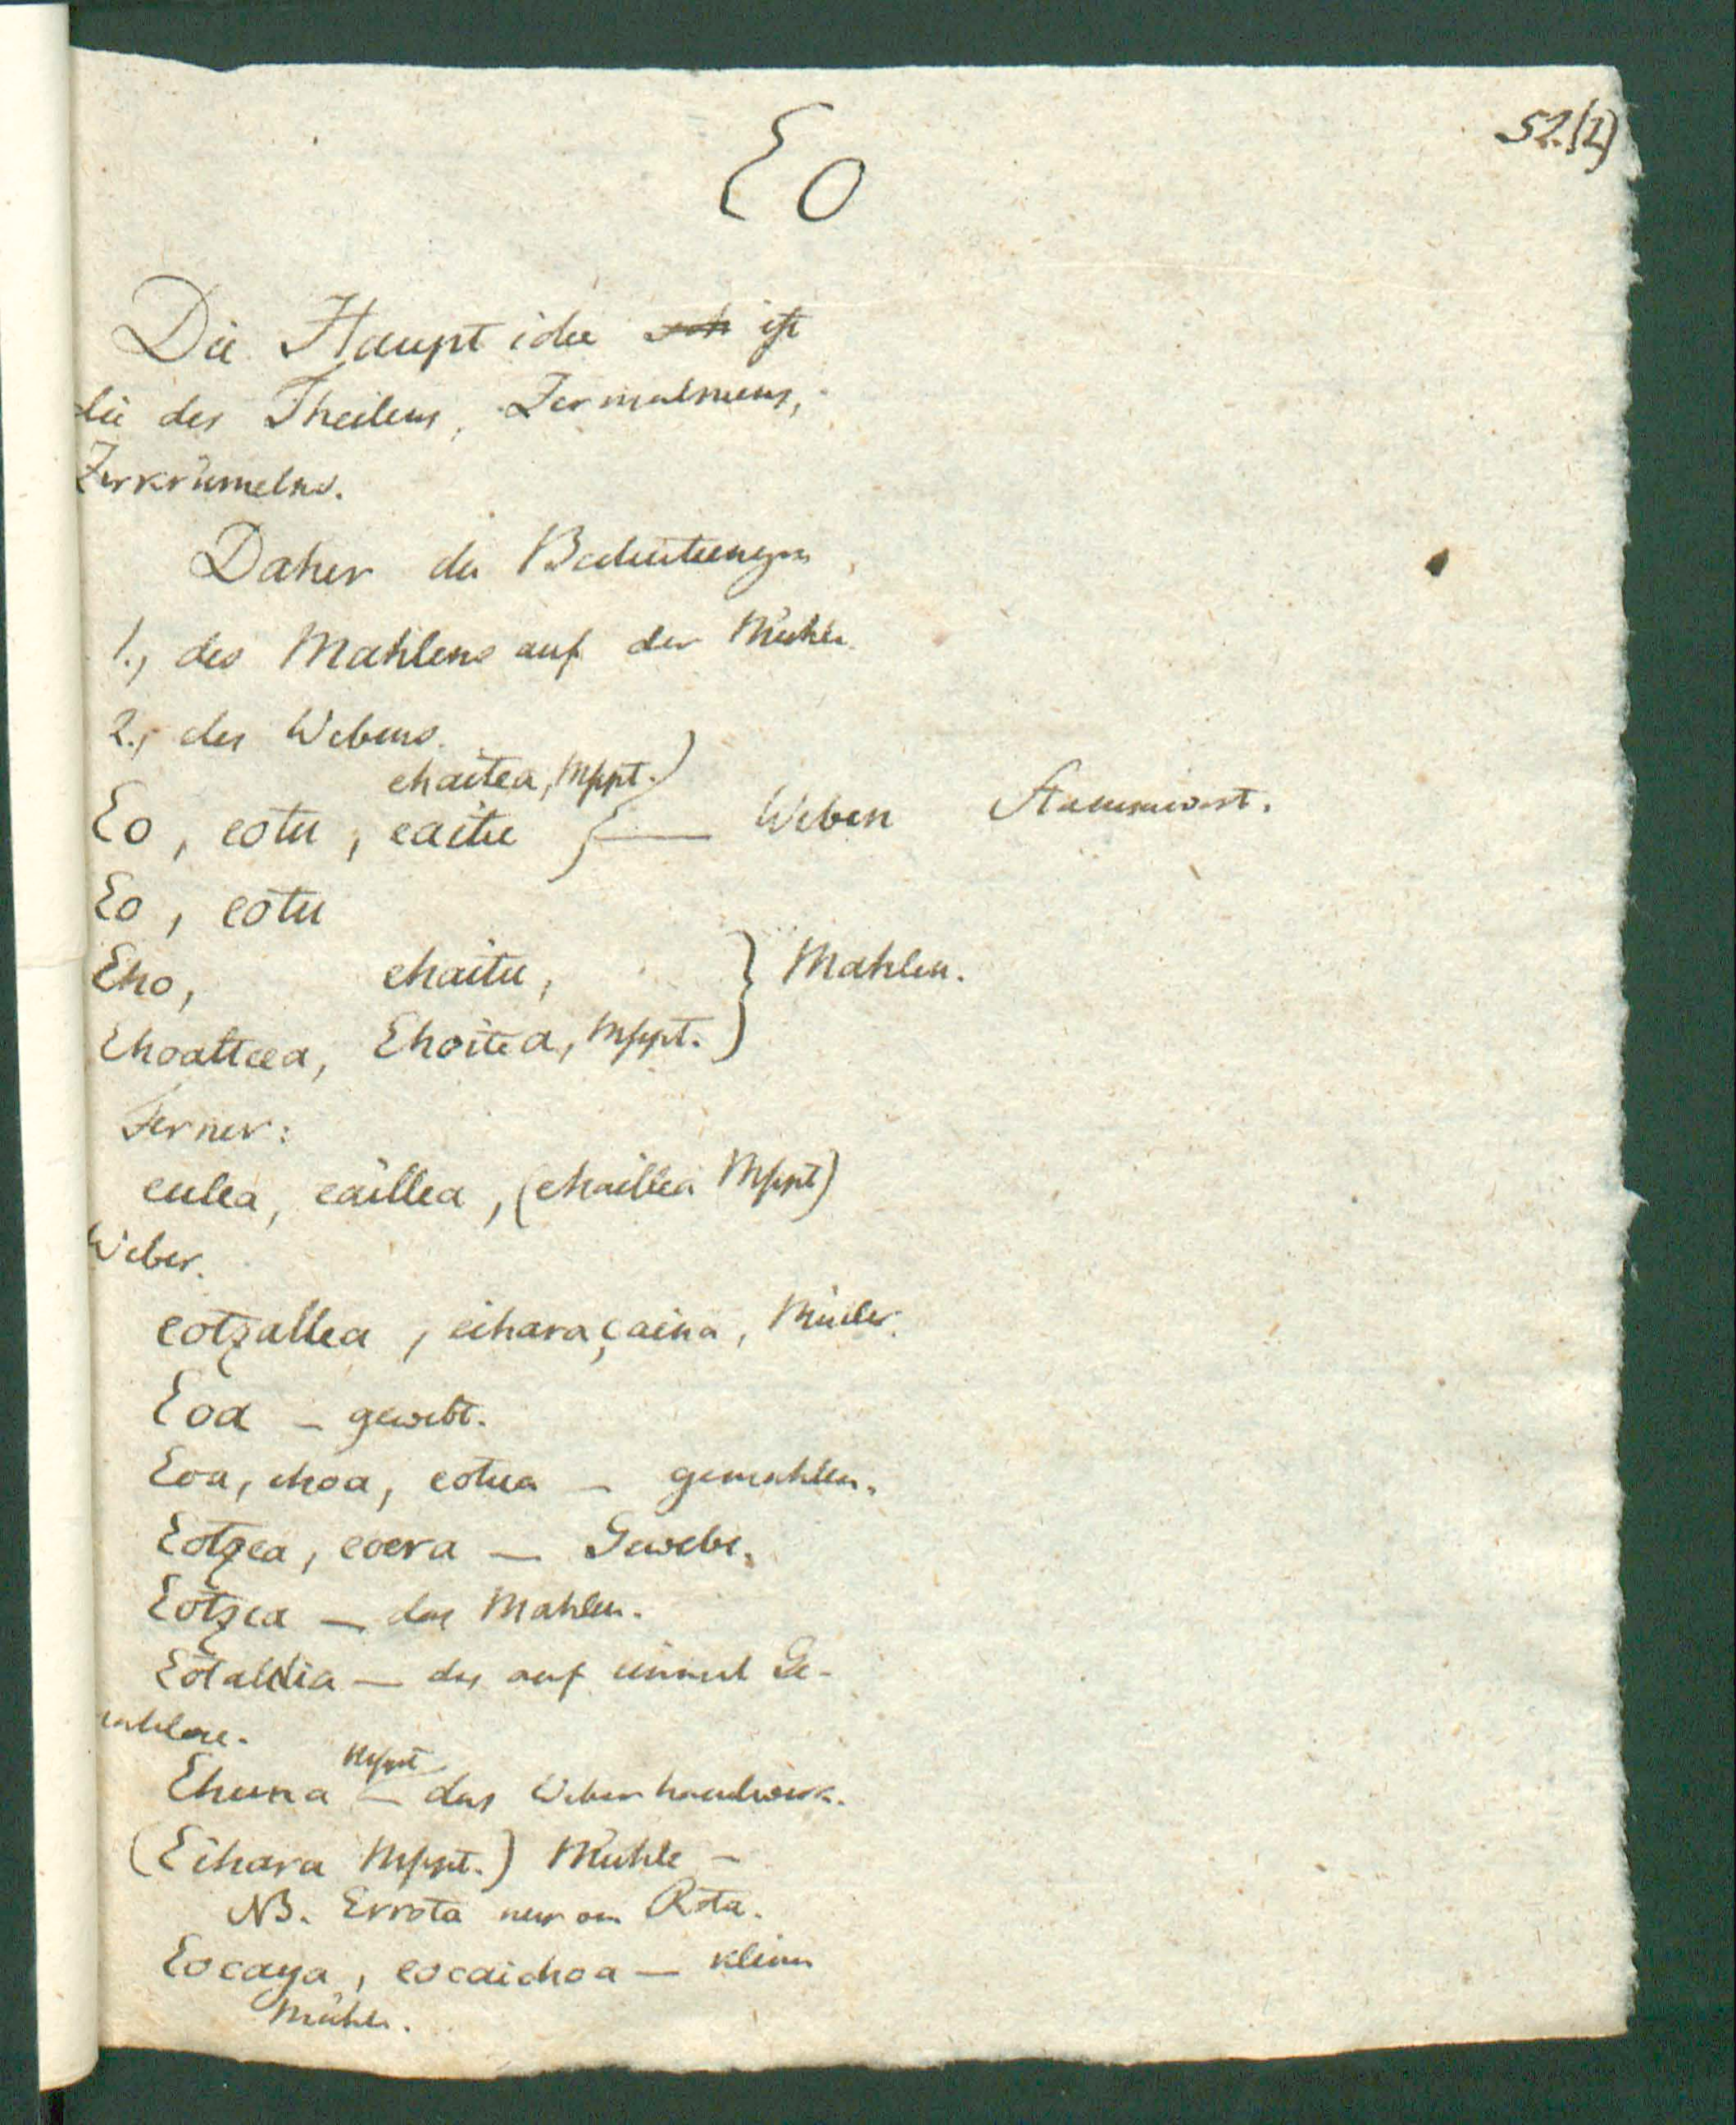 52.(1)
Eo
Die Hauptidee ist
die des Theilens, Zermalmens,
Zerkrümelns.
Daher die Bedeutungen
1., des Mahlens auf der Mühle.
2., des Webens.
ehaitea, Mspt.)
Eo, eotu, eaitu } — Weben Stammwort.
Eo, eotu
Eho, ehaitu, } Mahlen.
Ehoattcea, Ehoitea, Mspt.
Ferner:
eulea, eaillea, (ehaillea Mspt)
Weber.
eotzallea, eiharaçaina, Müller.
Eoa – gewebt.
Eoa, ehoa, eotua – gemahlen.
Eotzea, eoera — Gewebe.
Eotzea — das Mahlen.
Eotaldia — das auf einmal Ge-
mahlene.
Mspt
Ehuna – das Weberhandwerk.
(Eihara Mspt.) Mühle –
NB. Errota nur von Rota.
Eocaya, eocaichoa — kleine
Mühle.